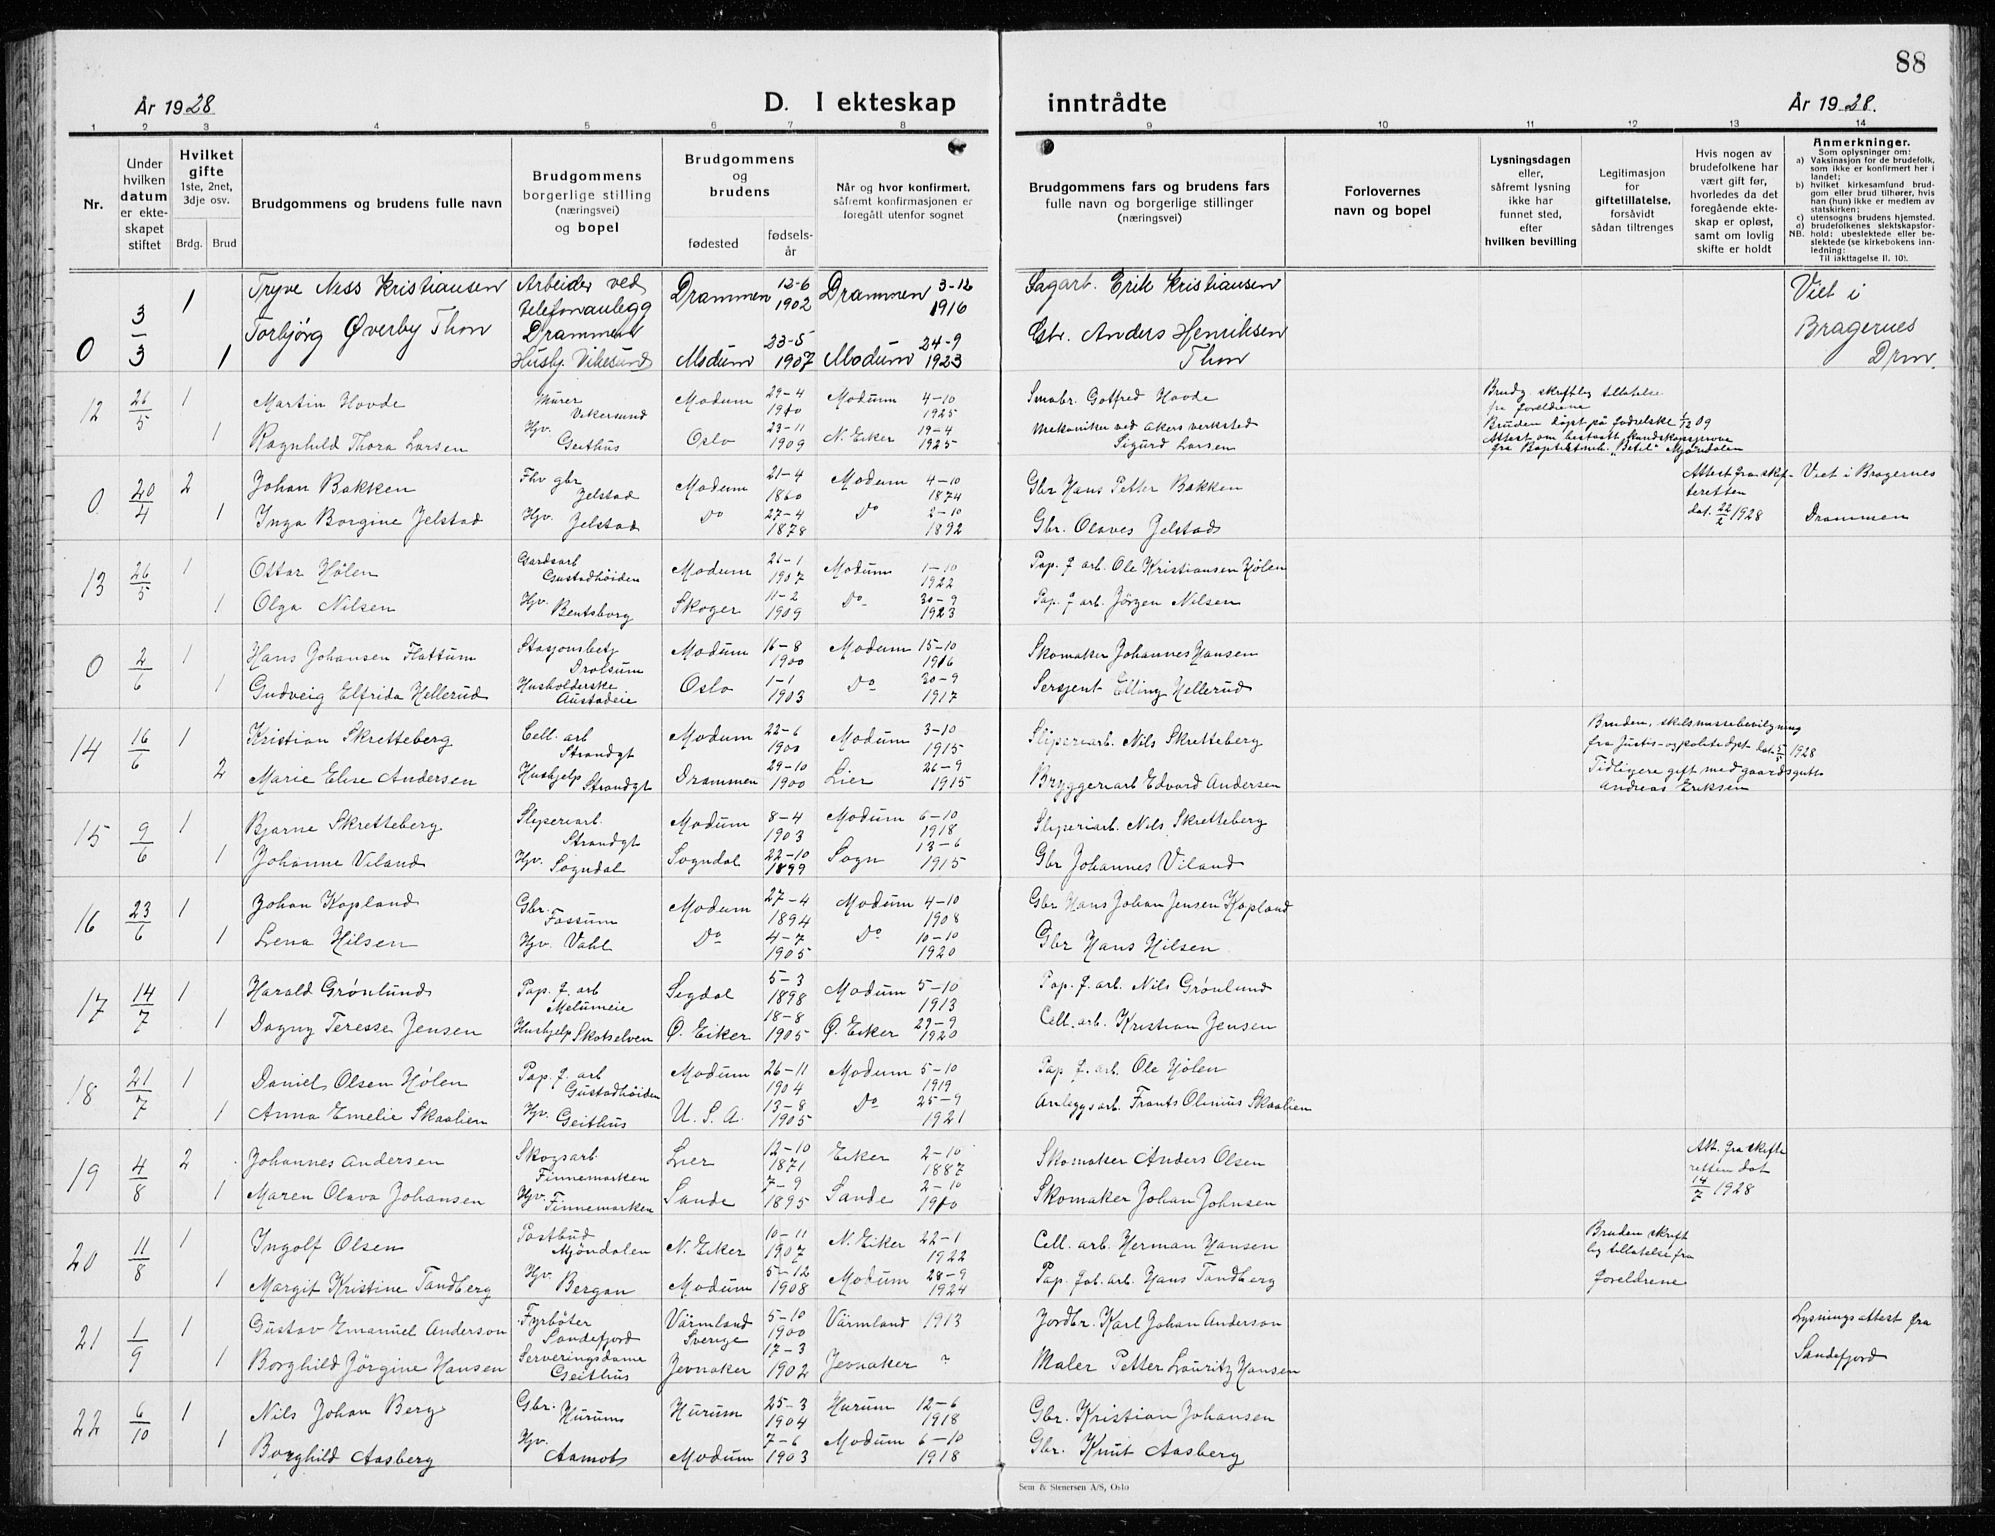 88
År 1928
D. I ekteskap
inntrådte
År 1928.
1 2 3 4 5 6 7 8 9 10 11 12 13 14
Nr.
Under hvilken datum er ekteskapet stiftet
Hvilket gifte
1ste, 2net, 3dje osv.
Brdg. Brud
Brudgommens og brudens fulle navn
Brudgommens borgerlige stilling (næringsvei) og bopel
Brudgommens og brudens
fødested
fødselsår
Når og hvor konfirmert, såfremt konfirmasjonen er foregått utenfor sognet
Brudgommens fars og brudens fars fulle navn og borgerlige stillinger (næringsvei)
Forlovernes navn og bopel
Lysningsdagen eller, såfremt lysning ikke har funnet sted, efter hvilken bevilling
Legitimasjon for giftetillatelse, forsåvidt sådan tiltrenges
Hvis nogen av brudefolkene har vært gift før, hvorledes da det foregående ekteskap er opløst, samt om lovlig skifte er holdt
Anmerkninger.
Som oplysninger om:
a) Vaksinasjon for de brudefolk, som ikke er konfirmert her i landet;
b) hvilket kirkesamfund brudgom eller brud tilhører, hvis han (hun) ikke er medlem av statskirken;
c) utensogns brudens hjemsted.
d) brudefolkenes slektskapsforhold: ubeslektede eller beslektede (se kirkebokens innledning:
NB. Til iakttagelse II. 10).
0 3/3 1 Tryve Ness Kristiansen Arbeider ved telefonanlegg Drammen Drammen 12-6 1902 Drammen 3-12 1916 Sagarb. Erik Kristiansen Viet i Bragernes Drm.
1 Torbjörg Øverby Thon Hushj. Vikesund Modum 23-5 1907 Modum 24-9 1923 Gbr. Anders Henriksen Thon
12 26/5 1 Martin Hovde Murer Vikersund Modum 29-4 1910 Modum 4-10 1925 Smabr. Gotfred Hovde Brudg. skriftlig tillatelse fra foreldrene
1 Ragnhild Thora Larsen Hjv. Geithus Oslo 23-11 1909 N. Eiker 19-4 1925 Mekaniker ved Akers verksted Sigurd Larsen Bruden döpt på fødselske 1/12 09 Attest om bestaatt kundskapsprøve fra Baptistmh. "Betel" Mjøndalen
0 20/4 2 Johan Bakken Fhv gbr Jelstad Modum 21-4 1860 Modum 4-10 1874 Gbr Hans Petter Bakken Attest fra skifteretten dat. 1928 Viet i Bragernes Drammen
1 Inga Borgine Jelstad Hjv. Jelstad Do 27-4 1878 Do 2-10 1892 Gbr. Olaves Jelstad
13 26/5 1 Ottar Hølen Gardsarb Gustadhöiden Modum 26-1 1907 Modum 1-10 1922 Pap. f arb. Ole Kristiansen Hølen
1 Olga Nilsen Hjv. Bentsborg Skoger 11-2 1909 Do 30-9 1923 Pap. f arb. Jörgen Nilsen
0 2/6 1 Hans Johansen Flattum Stasjonsbetj Drolsum Modum 16-8 1900 Modum 15-10 1916 Skomaker Johannes Hansen
1 Gudveig Elfrida Hellerud Husholderske Austadeie Oslo 1-1 1903 Do 30-9 1917 Sersjent Elling Hellerud
14 16/6 1 Kristian Skretteberg Cell. arb Strandgt Modum 22-6 1900 Modum 3-10 1915 Sliperiarb. Nils Skretteberg Bruden, skilsmissebevilgning fra Justis- og politidept dat 5/5 1928
2 Marie Elise Andersen Hushjelp Strandgt Drammen 29-10 1900 Lier 26-9 1915 Bryggeriarb Edvard Andersen Tidligere gift med gaardsgutt Andreas Eriksen
15 9/6 1 Bjarne Skretteberg Sliperiarb. Strandgt Modum 8-4 1903 Modum 6-10 1918 Sliperiarb. Nils Skretteberg
1 Johanne Viland Hjv. Sogndal Sogndal 22-10 1899 Sogn 13-6 1915 Gbr Johannes Viland
16 23/6 1 Johan Kopland Gbr. Fossum Modum 27-4 1894 Modum 4-10 1908 Gbr Hans Johan Jensen Kopland
1 Lena Hilsen Hjv. Vahl Do 4-7 1905 Do 10-10 1920 Gbr Hans Hilsen
17 14/7 1 Harald Grønlund Pap. f. arb Melumeie Sigdal 5-3 1898 Modum 5-10 1913 Pap. f. arb. Nils Grønlund
1 Dagny Teresse Jensen Hushjelp Skotselven Ø. Eiker 18-8 1905 Ø. Eiker 29-9 1920 Cell. arb. Kristian Jensen
18 21/7 1 Daniel Olsen Hølen Pap. f. arb Gustadhöiden Modum 26-11 1904 Modum 5-10 1919 Pap f. arb. Ole Hølen
1 Anna Emelie Skaalien Hjv. Geithus U.S.A. 13-8 1905 Do 25-9 1921 Anleggsarb. Frants Olinius Skaalien
19 4/8 2 Johannes Andersen Skogsarb. Finnemarken Lier 12-10 1871 Eiker 2-10 1887 Skomaker Anders Olsen Att. fra skifteretten dat 14/7 1928
1 Maren Olava Johansen Hjv. Finnemarken Sande 7-9 1895 Sande 2-10 1910 Skomaker Johan Johnsen
20 11/8 1 Ingolf Olsen Postbud Mjöndalen N. Eiker 10-11 1907 N. Eiker 22-1 1922 Cell. arb. Herman Hansen Bruden skriftlig tillatelse fra foreldrene
1 Margit Kristine Tandberg Hjv. Bergan Modum 5-12 1908 Modum 28-9 1924 Pap. fab. arb. Hans Tandberg
21 1/9 1 Gustav Emanuel Anderson Fyrböter Sandefjord Värmland Sverige 5-10 1900 Värmland 1913 Jordbr. Karl Johan Anderson Lysningsattest fra Sandefjord
1 Borghild Jörgine Hansen Serveringsdame Geithus Jevnaker 17-3 1902 Jevnaker ? Maler Petter Lauritz Hansen
22 6/10 1 Nils Johan Berg Gbr. Hurum Hurum 25-3 1904 Hurum 12-6 1918 Gbr. Kristian Johansen
1 Borghild Aasberg Hjv. Aamot Modum 7-6 1903 Modum 6-10 1918 Gbr. Knut Aasberg
Sem & Stenersen A/S, Oslo